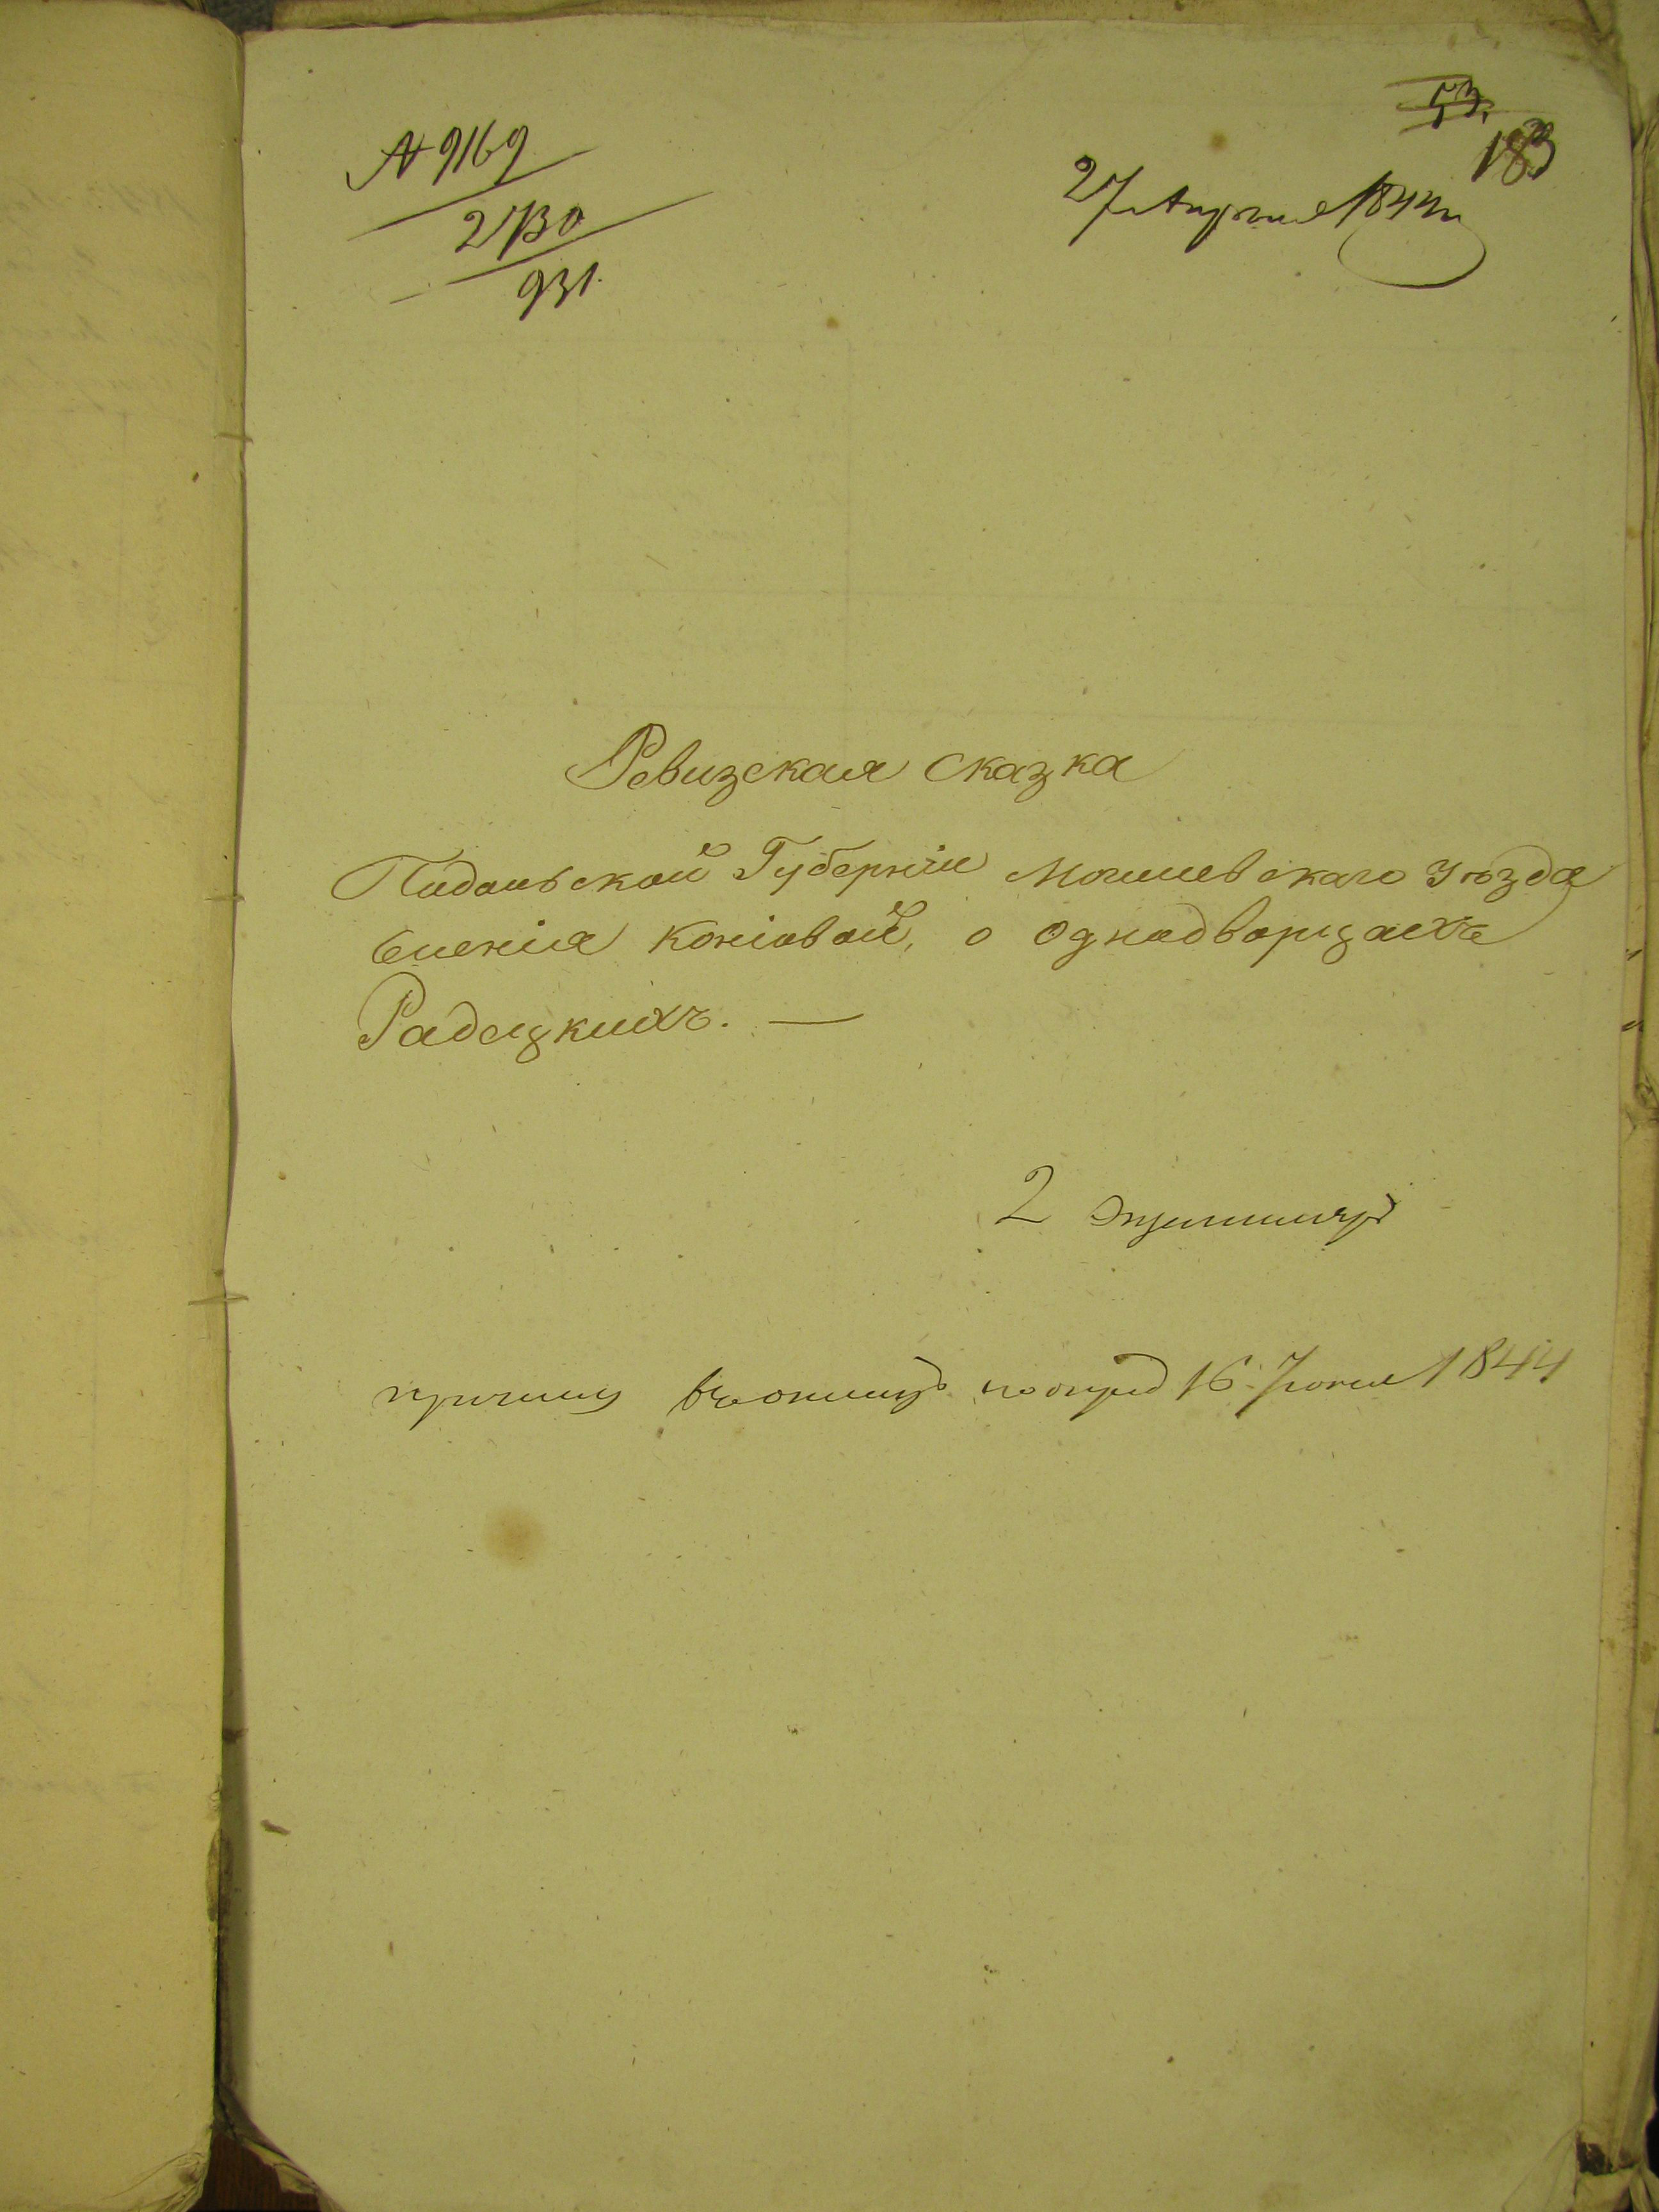 53.
183
№ 9169
2130
931.
27 Апреля 1844
Ревизская сказка
Подольской Губерніи Могилевскаго Уѣзда
Селенія Конівой, о однодворцахъ
Радецкихъ. —
2 Экземпляръ
16 Іюня 1844